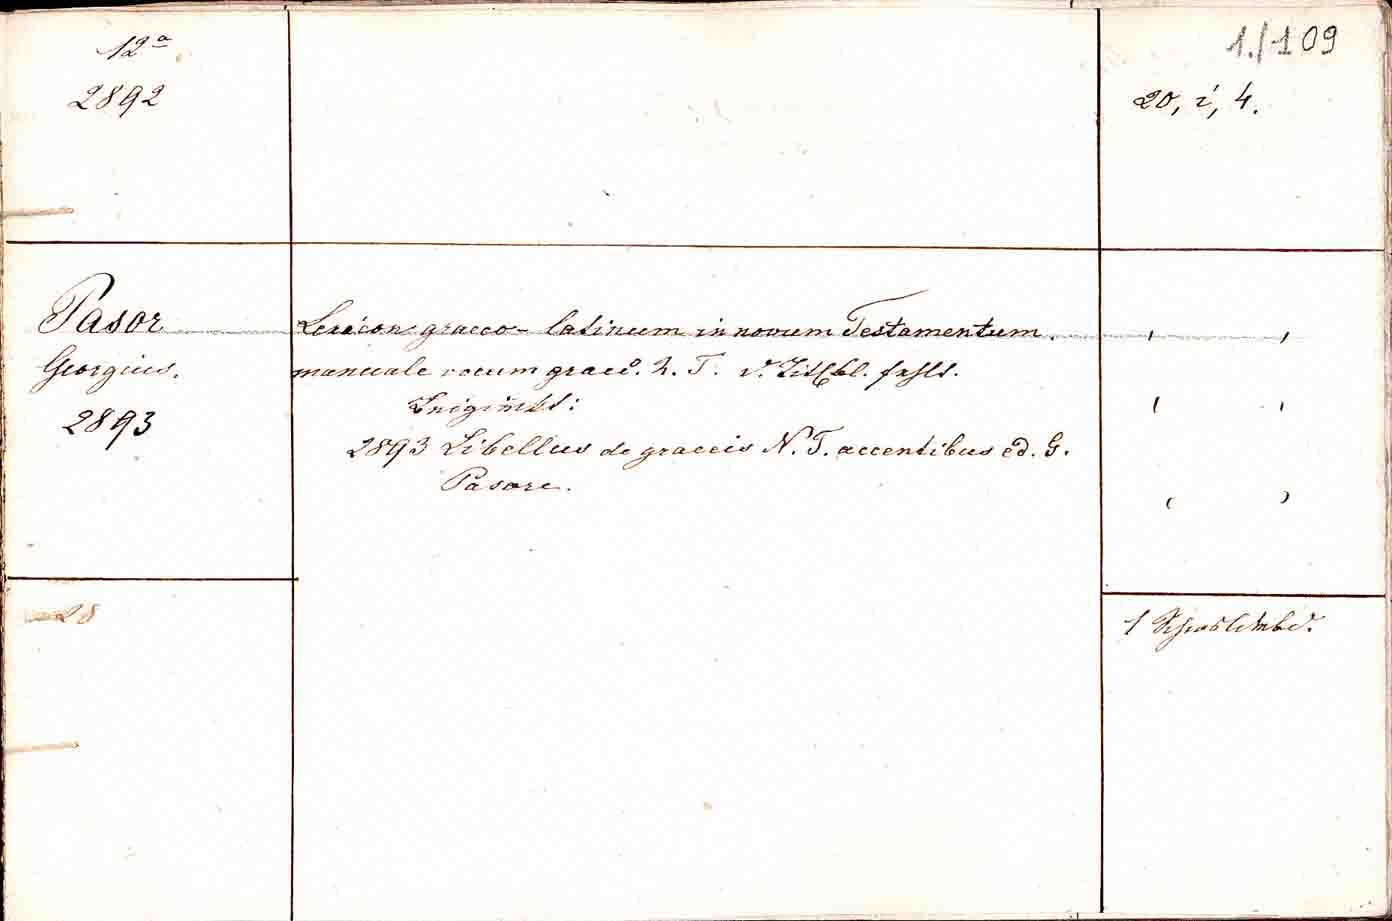 12ᵃ
2892
1./109
20, i, 4.
Pasor
Georgius.
2893
Lexicon graeco-latinum in novum Testamentum.
manuale vocum graec. N. T. d. Titelbl. fehlt.
Beigebd:
2893 Libellus de graecis N. T. accentibus ed. G.
Pasore.
28
1